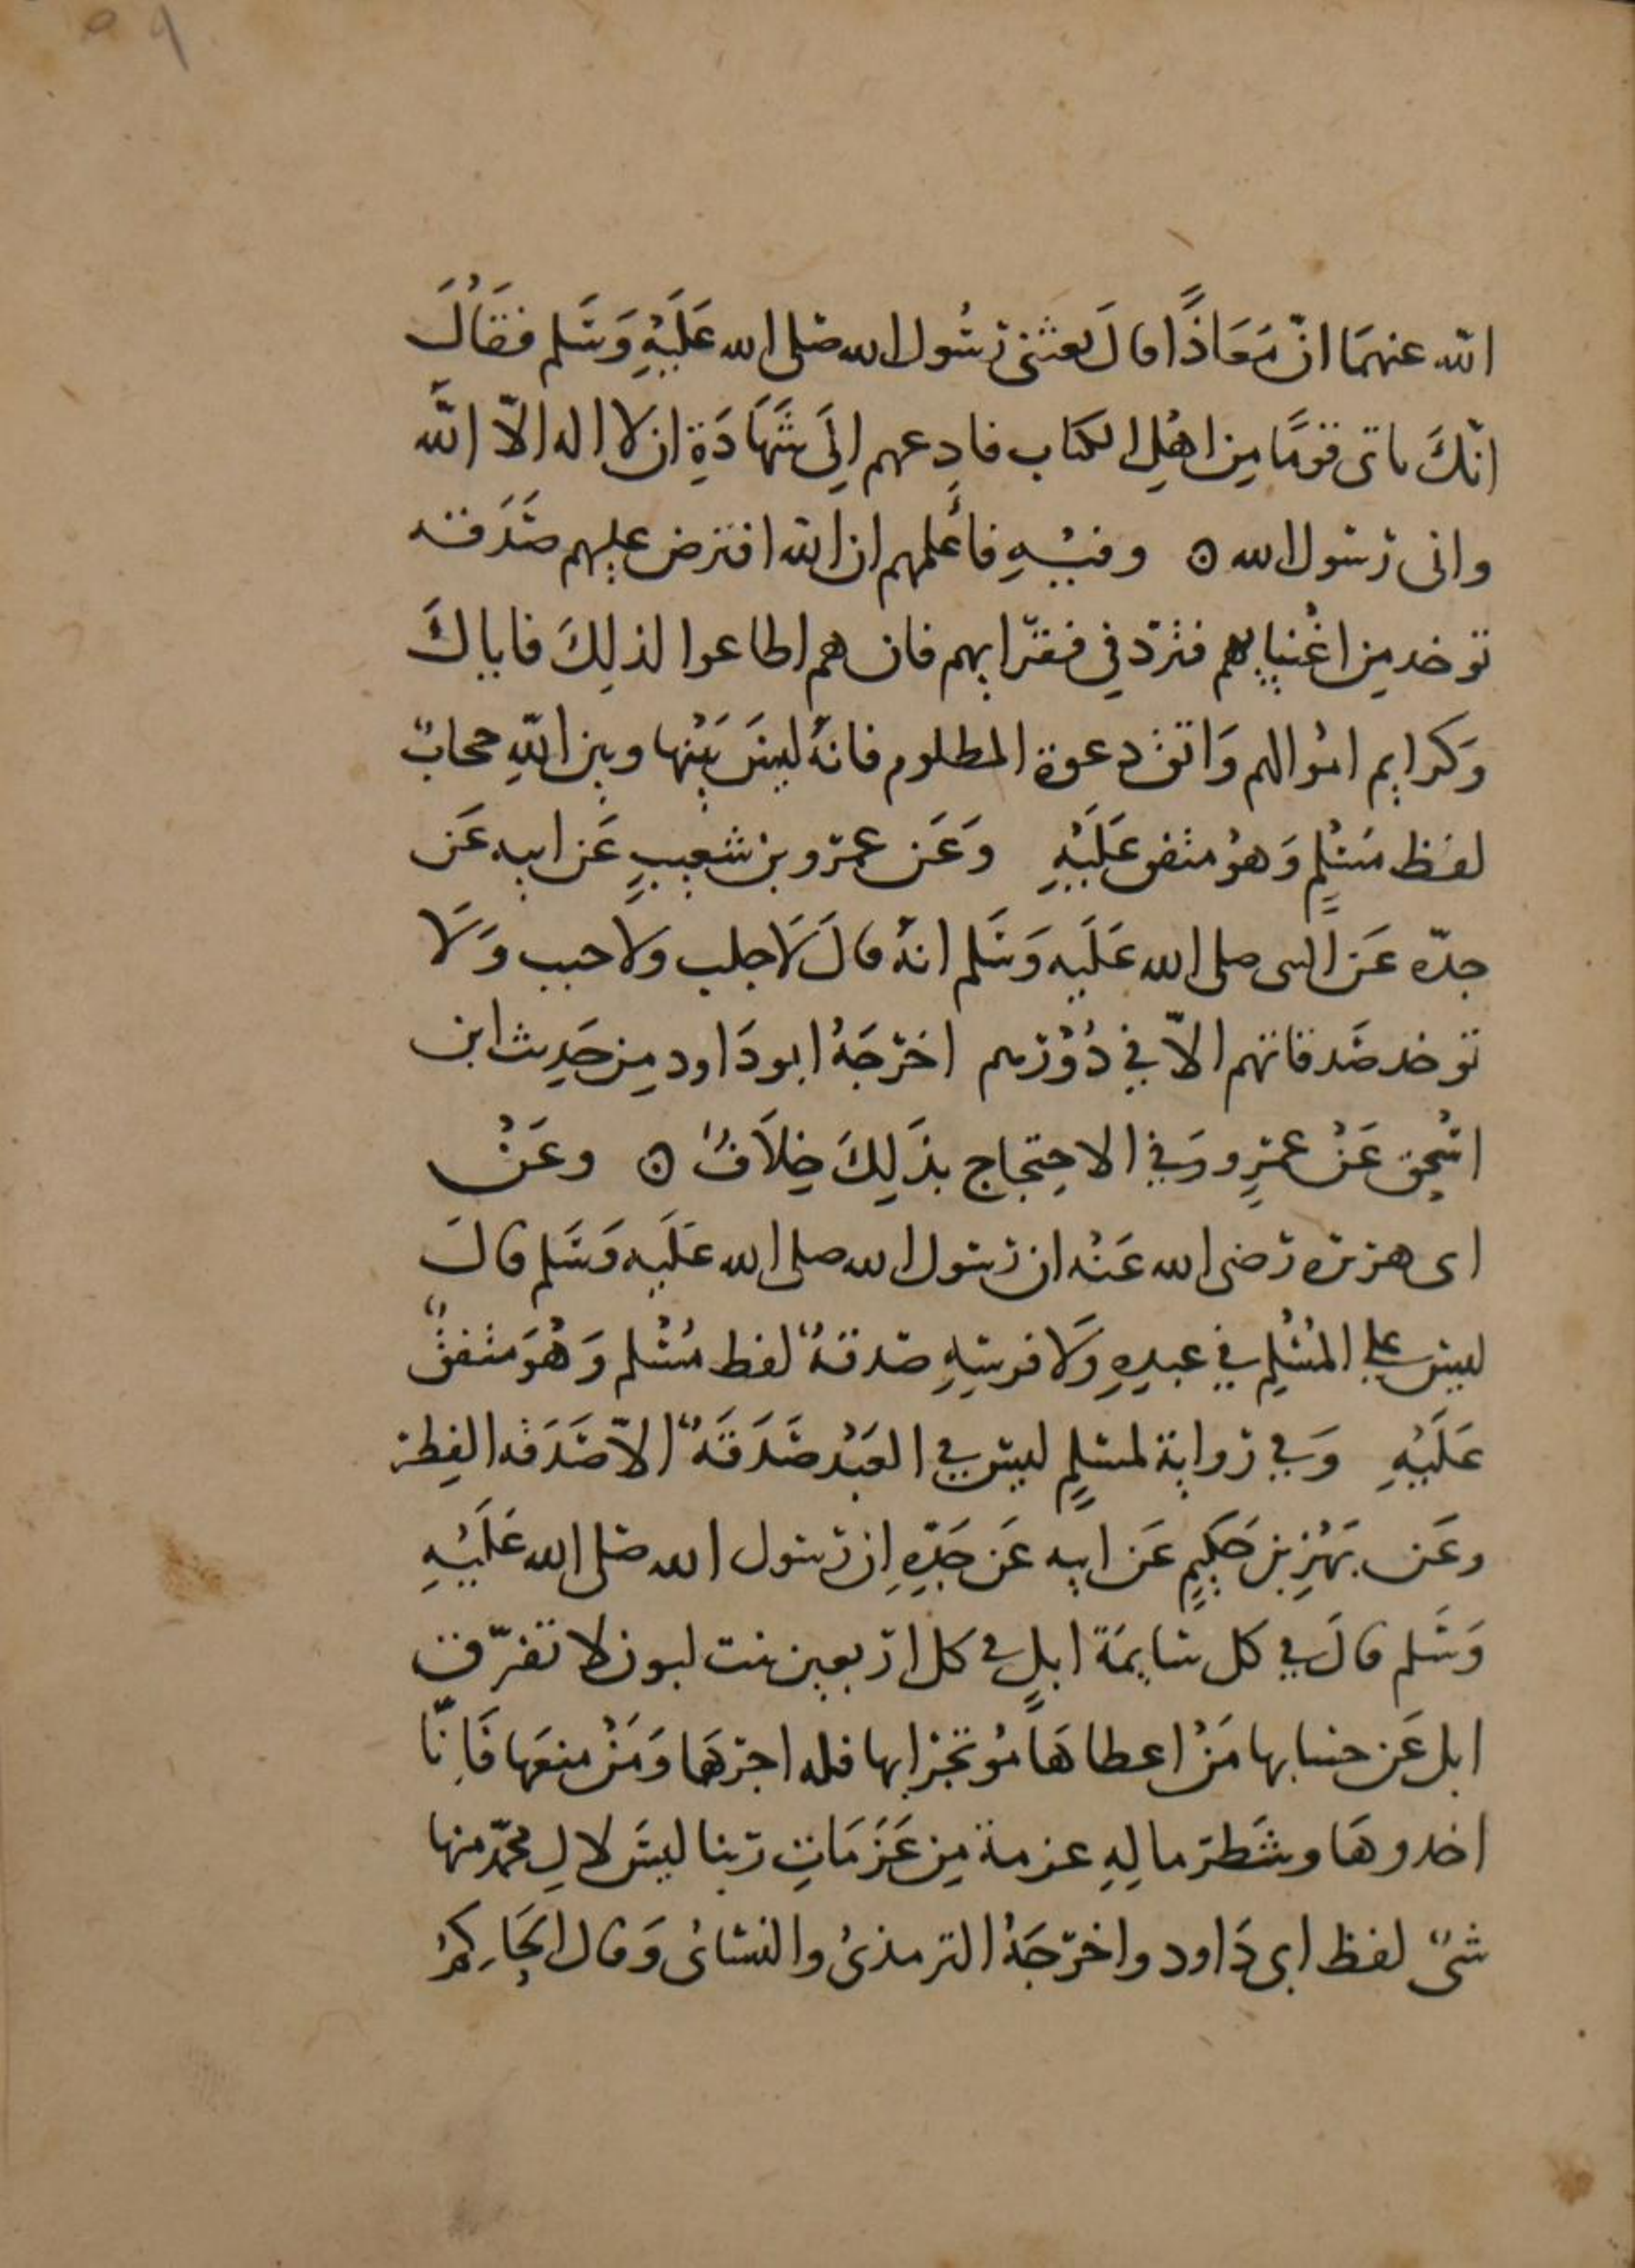 ٥٩
الله عنهمَا انّ مَعَاذًا قالَ بعثنى رسُول الله صلى الله عَلَيْهِ وَسَلم فقَالَ
انّكَ تاتى قومًا مِن اهْلِ الكتاب فادعهم اِلَى شَهَادَةِ ان لا اله الاّ اللَّه
وانى رسول الله ه وفيْهِ فأَعلمهم ان الله افترض عليهم صَدَقه
توخد مِن اغْنيايهم فتردّ فى فقرايهم فان هم اطاعوا لذلِكَ فاياكَ
وَكرايم امْوالهم وَاتق دعوة المظلوم فانهُ ليسَ بَيْنها وبين اللهِ حجابٌ
لفظ مُسْلمٍ وَهوُ متفق عَلَيْهِ وَعَن عمرو بن شعيبٍ عَن ابيه عَن
جدّه عَن النبى صلى الله عَلَيه وَسَلم انهُ قالَ لَا جلب ولا جنب وَلَا
توخد صَدقاتهم الاّ فِي دُوْرهم اخرجَهُ ابو دَاود مِن حَدِيث ابن
اسْحِق عَنْ عمرٍو وَفِي الاحِتجاج بذَلِكَ خِلَافٌ ه وعَنْ
ابى هريره رضى الله عَنْه ان رسول الله صلى الله عَلَيه وَسَلم قالَ
ليس على المُسْلِم فِي عبدِهِ وَلَا فرسِهِ صدقهٌ لفظ مُسْلم وَهُوَ متفقٌ
عَلَيْهِ وَفِي رواية لمسلمٍ ليس فِي العَبْد صَدَقَهٌ الاّ صَدَقه الفِطر
وعَن بَهْزِ بن حَكِيمٍ عَن ابيه عَن جَدِّهِ ان رسول الله صلى الله عَلَيْهِ
وَسَلم قالَ فِي كل سَايمَة ابلٍ فى كل اربعين بنت لبون لا تفرّق
ابل عَن حسابها مَنْ اعطاهَا مُوتجرًا بها فله اجرهَا وَمَنْ منعَها فَاِنّا
اخدوهَا وشَطر مالِهِ عزمة مِن عَزَمَاتِ ربنا ليسَ لالِ محمّد منها
شىٌ لفظ ابى دَاود واخرجَهُ الترمذىُ والنسائى وَقال الحَاكِمُ